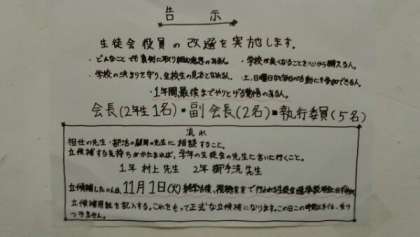 告 示
生徒会役員の改選を実施します。
・どんなことでも真剣に取り組む意思のある人。 ・学校が良くなることを心から願う人。
・学校の決まりを守り、全校生の見本となれる人。 ・土、日曜日などの行事や活動にも参加できる人。
・1年間、最後までやりとげる覚悟のある人。
会長(2年生1名)・副会長(2名)・執行委員(5名)
流れ
担任の先生・部活の顧問の先生に相談すること。
立候補する気持ちがかたまれば、学年の生徒会の先生に言いに行くこと。
1年 村上先生 2年 御手洗先生
立候補したい人は、11月1日(火)
立候補用紙を記入する。これをもって正式な立候補になります。この日この時間以外は、受けつけません。